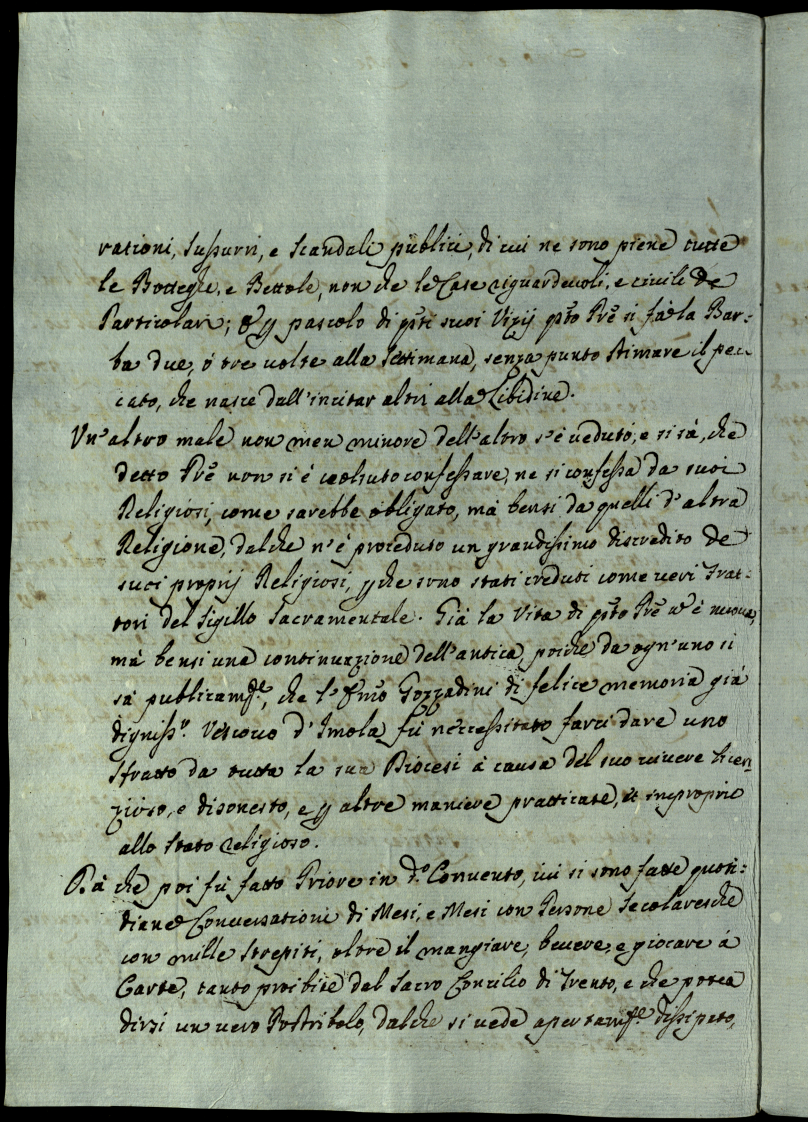 rationi, Sussurri, e Scandali publici, di cui ne sono piene tutte
le Botteghe, e Bettole, non che le Case riguardevoli, e civili de
Particolari; & p pascolo di qsti suoi Vizij qsto Prē si fà la Bar:
ba due, ó tre volte alla Settimana, senza punto stimare il pec
cato, che nasce dall'incitar altri alla Libidine.
Un'altro male non men minore dell'altro s'é veduto, e si sá, che
detto Prē non si é voluto confessare, ne si confessa da suoi
Religiosi, come sarebbe obligato, má bensi da quelli d'altra
Religione, dalche n'é proceduto un grandissimo discredito de
suoi proprij Religiosi, p che sono stati creduti come veri Frat:
tori del Sigillo Sacramentale. Giá la Vita di qsto Prē n' é nuova,
má bensi una continuazione dell'antica, poiche da ogn'uno si
sá publicamte, che l'Emo Gozzadini di felice memoria giá
digniss.o Vescovo d'Imola fú necessitato farci dare uno
Sfratto da tutta la sua Diocesi á causa del suo vivere licen
zioso, e disonesto, e p altre maniere pratticate, & improprie
allo stato religioso.
Dá che poi fú fatto Priore in d.o Convento, ivi si sono fatte quoti:
diane Conversationi di Mesi, e Mesi con Persone Secolaresche
con mille strepiti, oltre il mangiare, bevere, e giocare á
Carte, tanto proibite dal Sacro Concilio di Trento, e che potea
dirsi un vero Postribolo, dalche si vede apertamte dissipato,